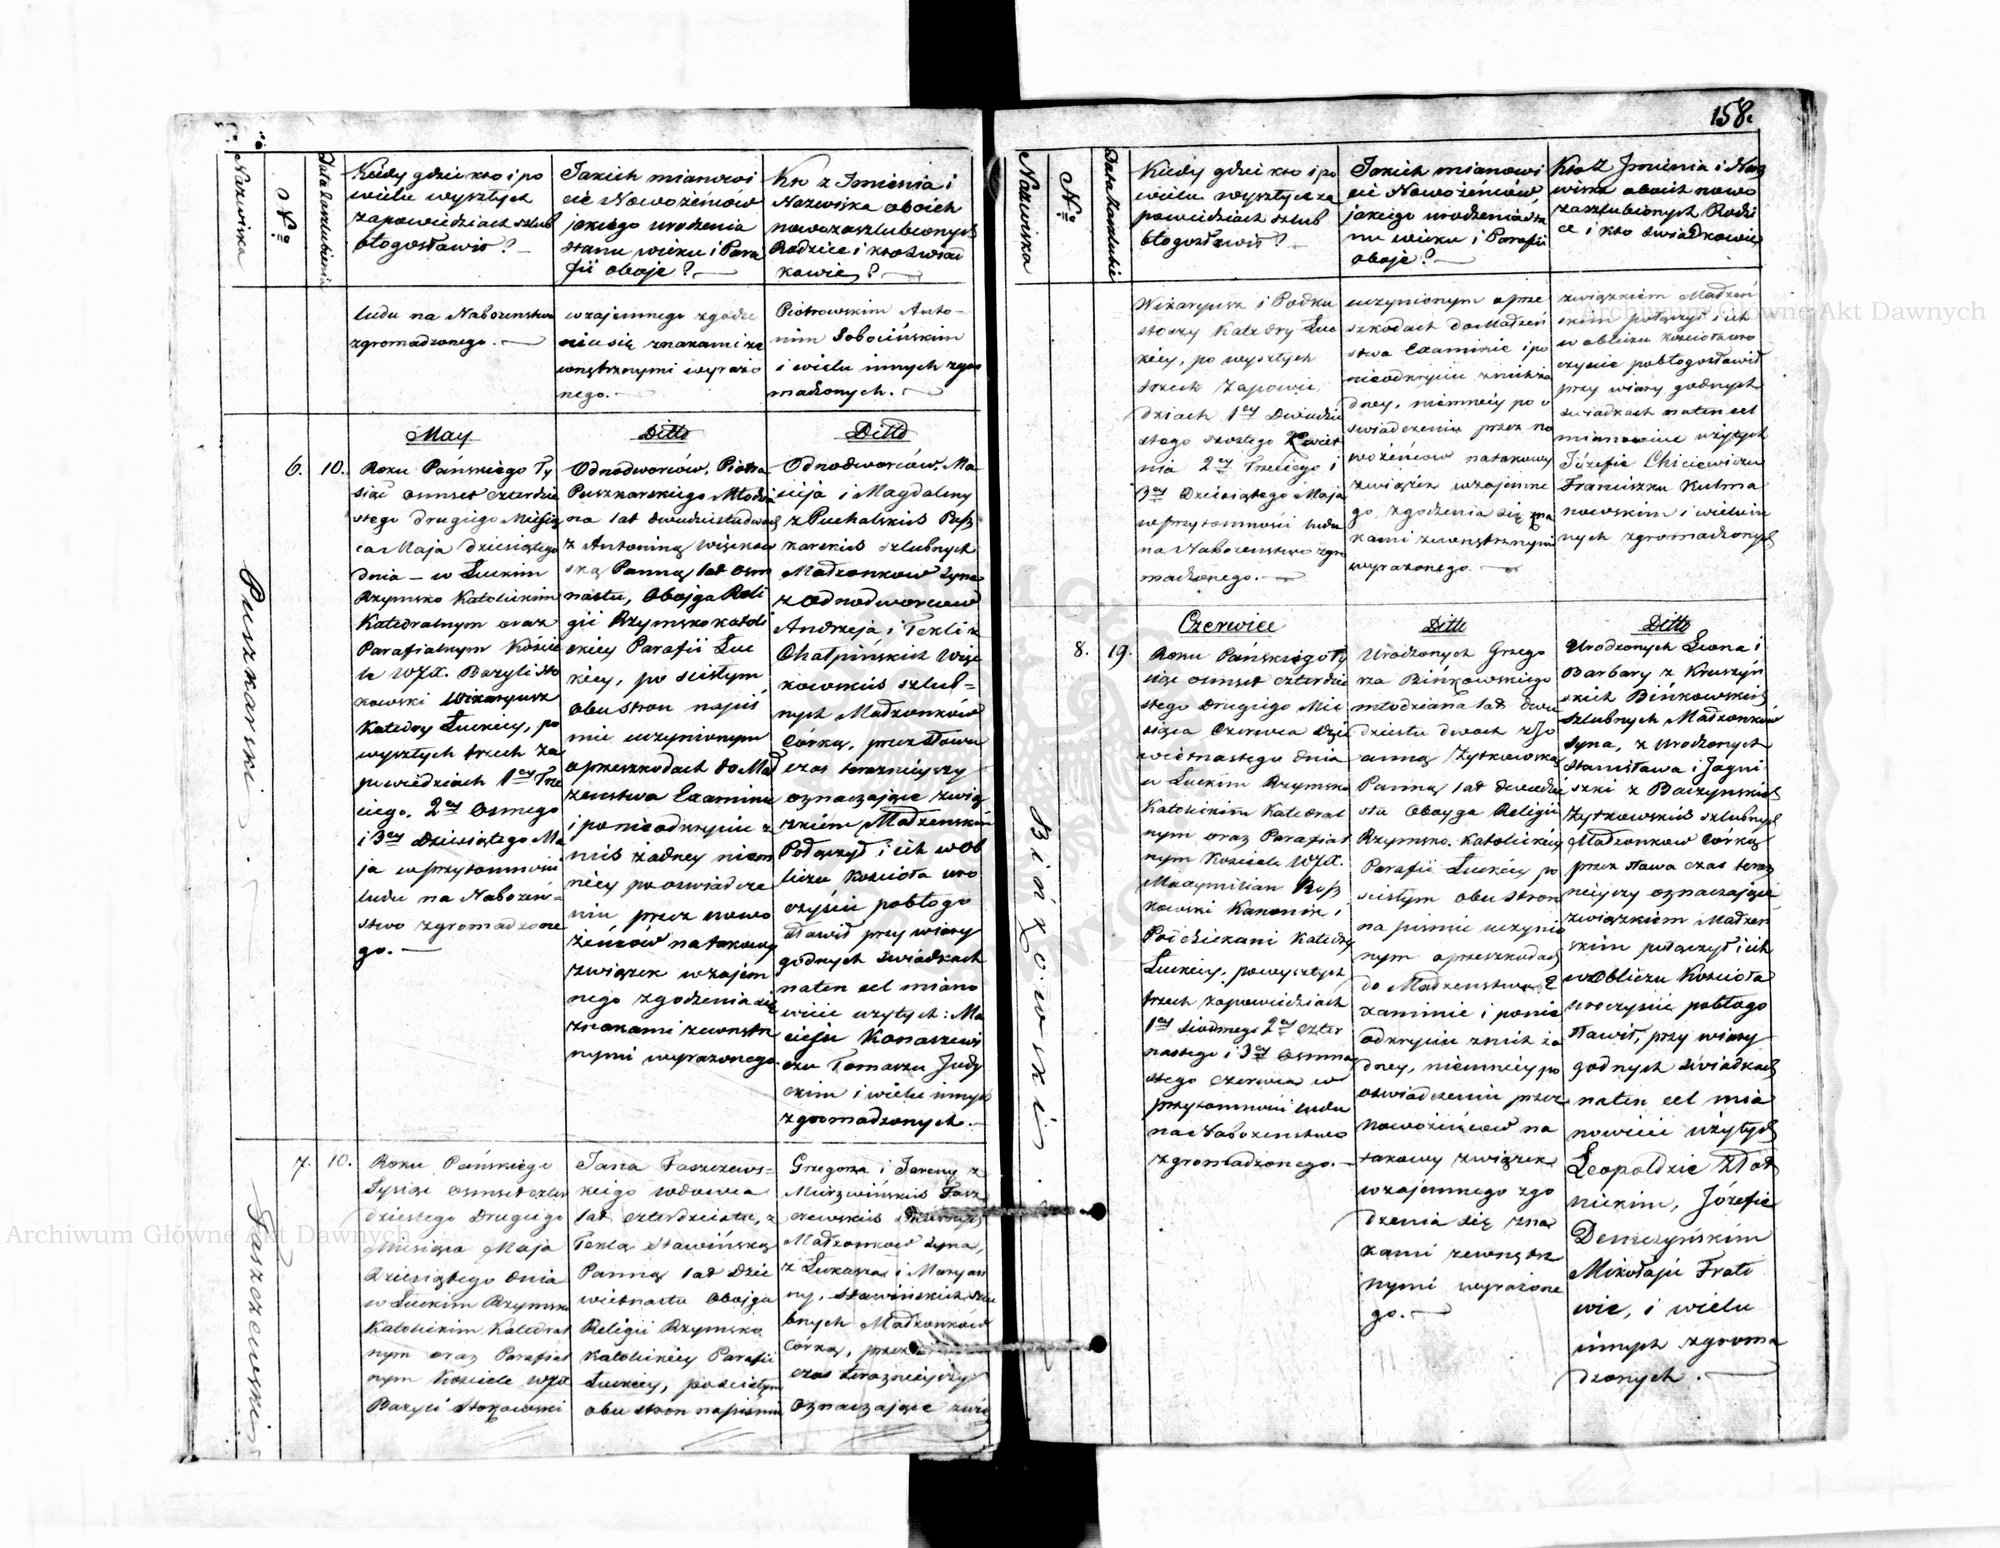 Nazwiska
No
Data Zaślubienia
Kiedy gdzie kto i po
wielu wyszłych
zapowiedziach szlub
błogosławił? —
Jakich mianowi
cie Nowożeńców
jakiego urodzenia
stanu wieku i Para
fii oboje? —
Kto z Imienia i
Nazwiska oboich
nowozaszlubionych
Rodzice i kto Świad
kowie? —
ludu na Nabożenstwo
zgromadzonego. —
wzajemnego zgodze
nia się znakami ze
wnętrznymi wyrażo
nego. —
Piotrowskim Anto-
nim Sobocińskim
i wielu innych zgro
madzonych. —
Puszkarski.
6.
10.
May
Roku Pańskiego Ty
siąc osmset czterdzie
stego drugiego Miesią
ca Maja dziesiątego
dnia — w Łuckim
Rzymsko Katolickim
Katedralnym oraz
Parafialnym Koście
le WJX. Bazyli Sto
kowski Wikaryusz
Katedry Łuckiey, po
wyszłych trzech za
powiedziach 1ey Trze
ciego, 2ey Osmego
i 3ey Dziesiątego Ma
ja w przytomności
ludu na Nabożeń=
stwo zgromadzone
go. —
Ditto
Odnodworców, Piotra
Puszkarskiego Młodzia
na lat dwudziestu dwóch
z Antoniną Więckow
ską Panną lat osm
nastu, Obojga Reli
gii Rzymsko katoli
ckiey Parafii Łuc
kiey, po scisłym
obu stron napiś
mie uczynionym
o przeszkodach do Mał
żenstwa Examinie
i po nieodkryciu z
nich żadney niem
niey po oswiadcze
niu przez nowo
żeńców na takowy
związek wzajem
nego zgodzenia się
znakami zewnętrz
nymi wyrażonego
Ditto
Odnodworców, Ma
cieja i Magdaleny
z Puchalskich Pusz
karskich szlubnych
Małżonkow Syna
z Odnodworcow
Andrzeja i Tekli z
Chałpińskich Więc
kowskich szlub=
nych Małżonków
Córką, przez słowa
czas teraznieyszy
oznaczające zwią
zkiem Małżeńskim
Połączył i ich w Ob
liczu Kościoła uro
czyście pobłogo
sławił przy wiary
godnych świadkach
naten cel miano
wicie użytych: Ma
cieju Konaszewi
czu Tomaszu Judy
ckim i wielu innych
zgromadzonych. —
Taszczewski
7.
10.
Roku Pańskiego
Tysiąc osmset czter
dziestego Drugiego
Miesiąca Maja
dziesiątego dnia
w Łuckim Rzymsko
Katolickim Katedral
nym oraz Parafial
nym Kościele WJX
Bazyli Stokowski
Jana Taszczews=
kiego wdowca
lat czterdziestu, z
Teklą Sławińską
Panną lat dzie
więtnastu Obojga
Religii Rzymsko
Katolickiey Parafii
Łuckiey, po scisłym
obu stron na piśmie
Grzegorza i Tereny z
Murzwińskich Tasz
czewskich
Małżonkow Syna,
z Łukasza i Maryan
ny, Sławińskich szlu
bnych Małżonków
Córką, przez
czas teraznieyszy
oznaczające zwią
158.
Nazwiska
No
Data Zaszlubie
Kiedy gdzie kto i po
wielu wyszłych za
powiedziach szlub
błogosławił? —
Jakich mianowi
cie Nowożeńców,
jakiego urodzenia sta
nu wieku i Parafii
oboje? —
Kto z Imienia i Naz
wiska oboich nowo
zaszlubionych Rodzi
ce i kto Swiadkowie
Wikaryusz i Podku
stoszy Katedry Łuc
kiey, po wyszłych
trzech Zapowie
dziach 1ey Dwudzie
stego szostego Kwiet
nia 2ey Trzeciego i
3ey Dziesiątego Maja
w przytomności ludu
na Nabożenstwo zgro
madzonego. —
uczynionym o prze
szkodach do Małżeń
stwa Examinie i po
nieodkryciu znich ża
dney, niemniey po o
swiadczeniu przez no
wożeńcow na takowy
związek wzajemne
go zgodzenia się zna
kami zewnętrznymi
wyrażonego. —
związkiem Małżeń
skim połączył i ich
w obliczu Kościoła uro
czyście pobłogosławił
przy wiary godnych
swiadkach naten cel
mianowicie użytych
Józefie Chiciewiczu
Franciszku Kulma
nowskim i wielu in
nych zgromadzonych
Bińkowski.
8.
19.
Czerwiec
Roku Pańskiego Ty
siąc osmset czterdzie
stego Drugiego Mie
siąca Czerwca dzie
więtnastego dnia
w Łuckim Rzymsko
Katolickim Katedral
nym oraz Parafial
nym Kościele WJX.
Maxymilian Rusz
kowski Kanonik i
Podziekani Katedry
Łuckiey, powyszłych
trzech zapowiedziach
1ey Siodmego 2ey czter
nastego i 3ey Osmna
stego Czerwca w
przytomności ludu
na Nabożenstwo
zgromadzonego. —
Ditto
Urodzonych Grzego
rza Bińkowskiego
młodziana lat dwu
dziestu dwoch z Jo
anną Żytkowską
Panną lat dwudzie
stu Oboyga Religii
Rzymsko. Katolickiey
Parafii Łuckiey po
scisłym obu stron
na piśmie uczynio
nym o przeszkodach
do Małżenstwa E
xaminie i ponie
odkryciu znich ża
dney, niemniey po
oświadczeniu przez
Nowożeńców na
takowy związek
wzajemnego zgo
dzenia się zna
kami zewnętrz
nymi wyrażone
go. —
Ditto
Urodzonych Leona i
Barbary z Kruszyń
skich Bińkowskich
Szlubnych Małżonków
Syna, z Urodzonych
Stanisława i Jagni
szki z Baczyńskich
Żytkowskich szlubnych
Małżonkow Córką
przez słowa czas teraz
nieyszy oznaczające
związkiem Małżeń
skim połączył i ich
w Obliczu Kościoła
uroczyście pobłogo
sławił, przy wiary
godnych świadkach
naten cel mia
nowicie użytych
Leopoldzie Złot
nickim, Józefie
Demczyńskim
Mikołaju Frato
wie, i wielu
innych zgroma
dzonych. —
Archiwum Główne Akt Dawnych
Archiwum Główne Akt Dawnych